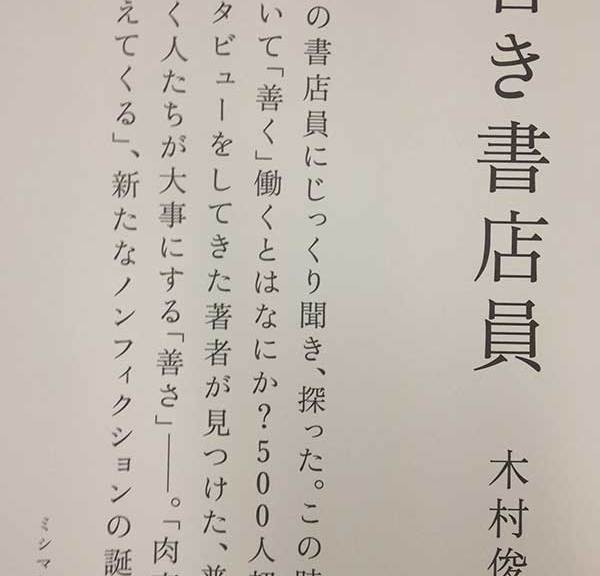 き書店員
木村俊
の書店員にじっくり聞き、探った。この時
いて「善く」働くとはなにか？500人
タビューをしてきた著者が見つけた、
く人たちが大事にする「善さ」――。「肉
えてくる」、新たなノンフィクションの誕
ミシマ